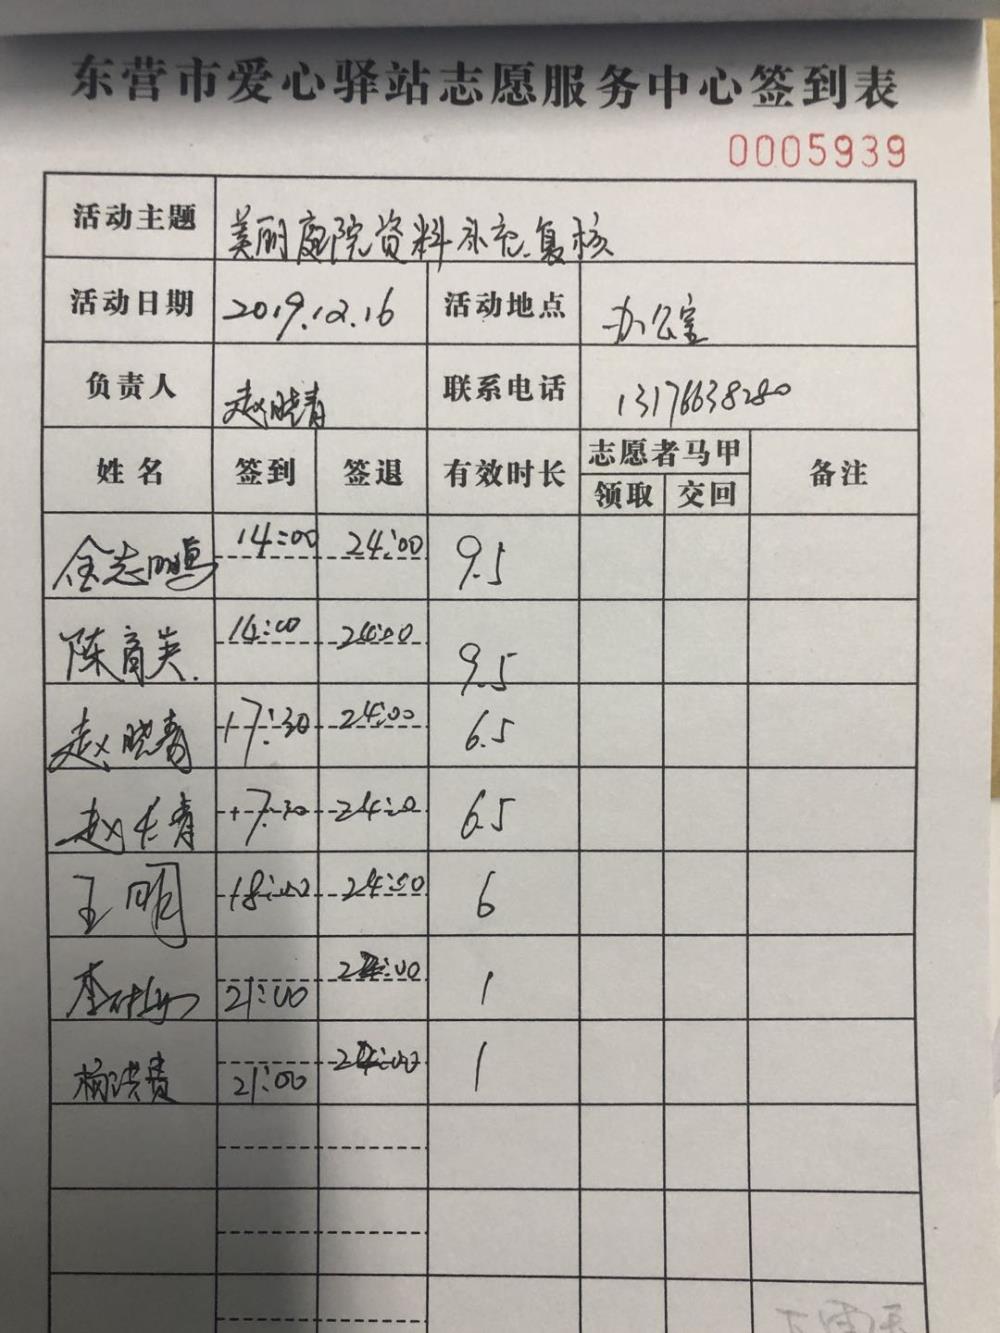 东营市爱心驿站志愿服务中心签到表
0005939
活动主题 美丽庭院资料补充.复核
活动日期 2019.12.16 活动地点 办公室
负责人 赵晓青 联系电话 13176638280
姓名 签到 签退 有效时长 志愿者马甲 备注
领取 交回
金志鹏 14:00 24:00 9.5
陈育美. 14:00 24:00 9.5
赵晓青 17:30 24:00 6.5
赵长青 17:30 24:00 6.5
王明 18:00 24:00 6
21:00 1
杨洪贵 21:00 1